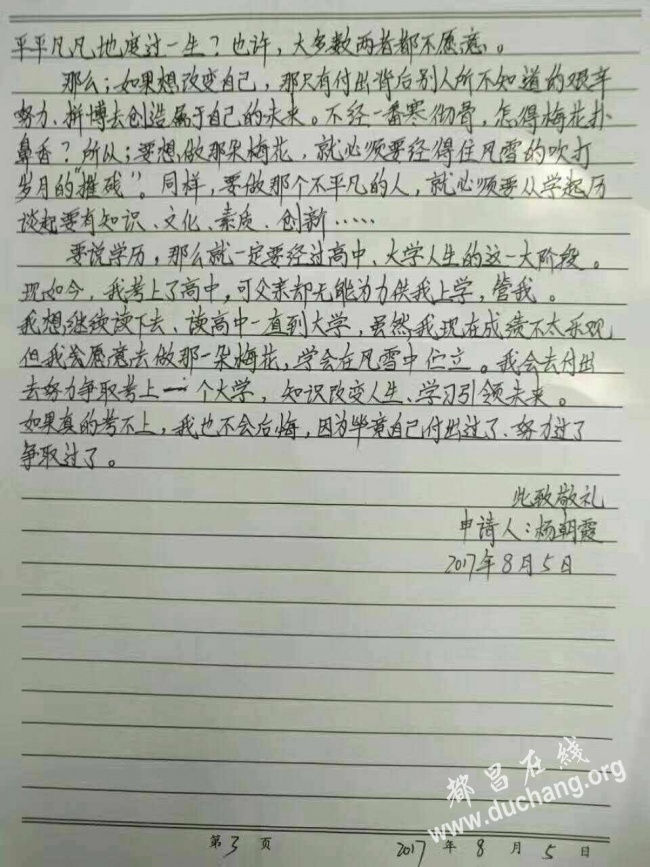 平平凡凡地度过一生？也许，大多数两者都不愿意。
那么；如果想改变自己，那只有付出背后别人所不知道的艰辛
努力、拼博去创造属于自己的未来。不经一番寒彻骨，怎得梅花扑
鼻香？所以；要想做那朵梅花，就必须要经得住风雪的吹打
岁月的"摧残"。同样，要做那个不平凡的人，就必须要从学起历
谈起要有知识、文化、素质、创新……
要说学历，那么就一定要经过高中、大学人生的这一大阶段。
现如今，我考上了高中，可父亲却无能为力供我上学，管我。
我想继续读下去、读高中一直到大学，虽然我现在成绩不太乐观
但我会愿意去做那一朵梅花，学会在风雪中伫立。我会去付出
去努力争取考上一个大学，知识改变人生、学习引领未来。
如果真的考不上，我也不会后悔，因为毕竟自己付出过了、努力过了
争取过了。
此致敬礼
申请人：杨朝霞
2017年8月5日
都昌在线
www.duchang.org
第3页 2017年8月5日